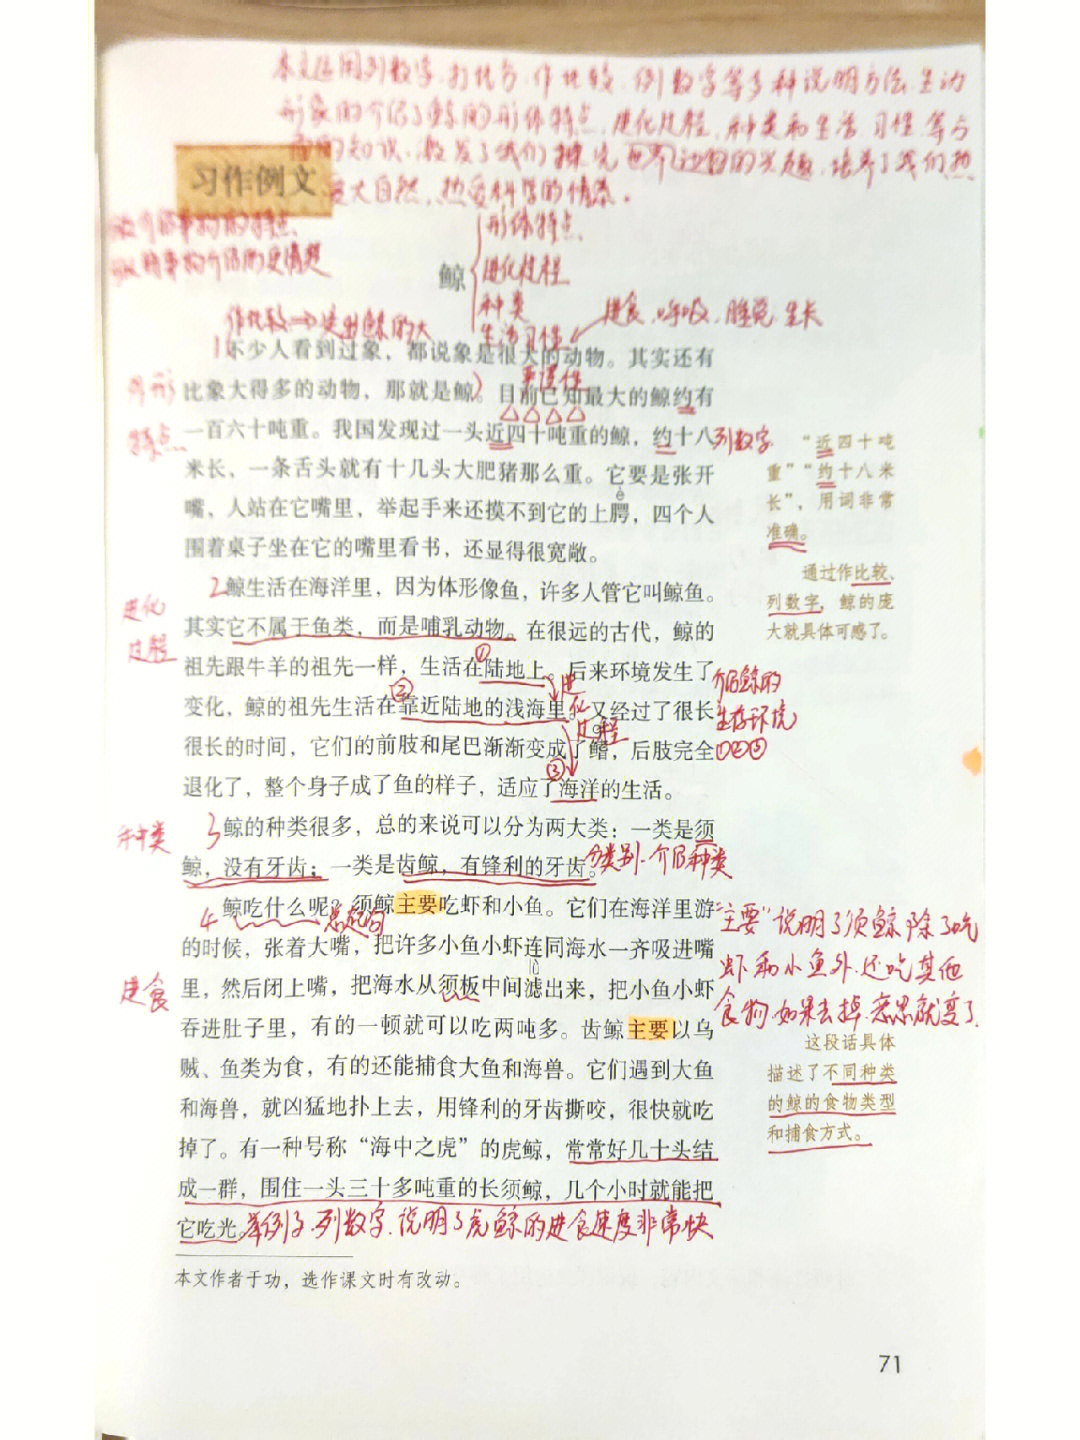 本文运用列数字、打比方、作比较、列数字等多种说明方法,生动
形象的介绍了鲸的形体特点、进化过程、种类和生活习性等方
面的知识,激发了我们探究世界边的兴趣,培养了我们热
爱大自然、热爱科学的情恭。
习作例文
介绍事物的特点、
事物介绍的更清楚
形体特点、
进化过程
鲸
种类
生活习性
进食、呼吸、睡觉、生长
作比较→突出鲸的大
1不少人看到过象,都说象是很大的动物。其实还有
外形
特点
比象大得多的动物,那就是鲸。目前已知最大的鲸约有
一百六十吨重。我国发现过一头近四十吨重的鲸,约十八
列数字
米长、一条舌头就有十几头大肥猪那么重。它要是张开
è
嘴,人站在它嘴里,举起手来还摸不到它的上腭,四个人
围着桌子坐在它的嘴里看书,还显得很宽敞。
“近四十吨
重”“约十八米
长”,用词非常
准确。
通过作比较、
列数字,鲸的庞
大就具体可感了。
进化
过程
2鲸生活在海洋里,因为体形像鱼,许多人管它叫鲸鱼。
其实它不属于鱼类,而是哺乳动物。在很远的古代,鲸的
①
祖先跟牛羊的祖先一样,生活在陆地上。后来环境发生了
②
变化,鲸的祖先生活在靠近陆地的浅海里。又经过了很长
进化过程
很长的时间,它们的前肢和尾巴渐渐变成了鳍,后肢完全
③
退化了,整个身子成了鱼的样子,适应了海洋的生活。
介绍鲸的
生存环境
①②③
种类
3鲸的种类很多,总的来说可以分为两大类:一类是须
鲸,没有牙齿;一类是齿鲸,有锋利的牙齿。
分类别、介绍种类
4鲸吃什么呢?须鲸主要吃虾和小鱼。它们在海洋里游
总起句
的时候,张着大嘴,把许多小鱼小虾连同海水一齐吸进嘴
进食
里,然后闭上嘴,把海水从须板中间滤出来,把小鱼小虾
吞进肚子里,有的一顿就可以吃两吨多。齿鲸主要以乌
贼、鱼类为食,有的还能捕食大鱼和海兽。它们遇到大鱼
和海兽,就凶猛地扑上去,用锋利的牙齿撕咬,很快就吃
掉了。有一种号称“海中之虎”的虎鲸,常常好几十头结
成一群,围住一头三十多吨重的长须鲸,几个小时就能把
它吃光。举例子、列数字、说明了虎鲸的进食速度非常快
“主要”说明了须鲸除了吃
虾和小鱼外,还吃其他
食物,如果去掉,意思就变了。
这段话具体
描述了不同种类
的鲸的食物类型
和捕食方式。
本文作者于功,选作课文时有改动。
71